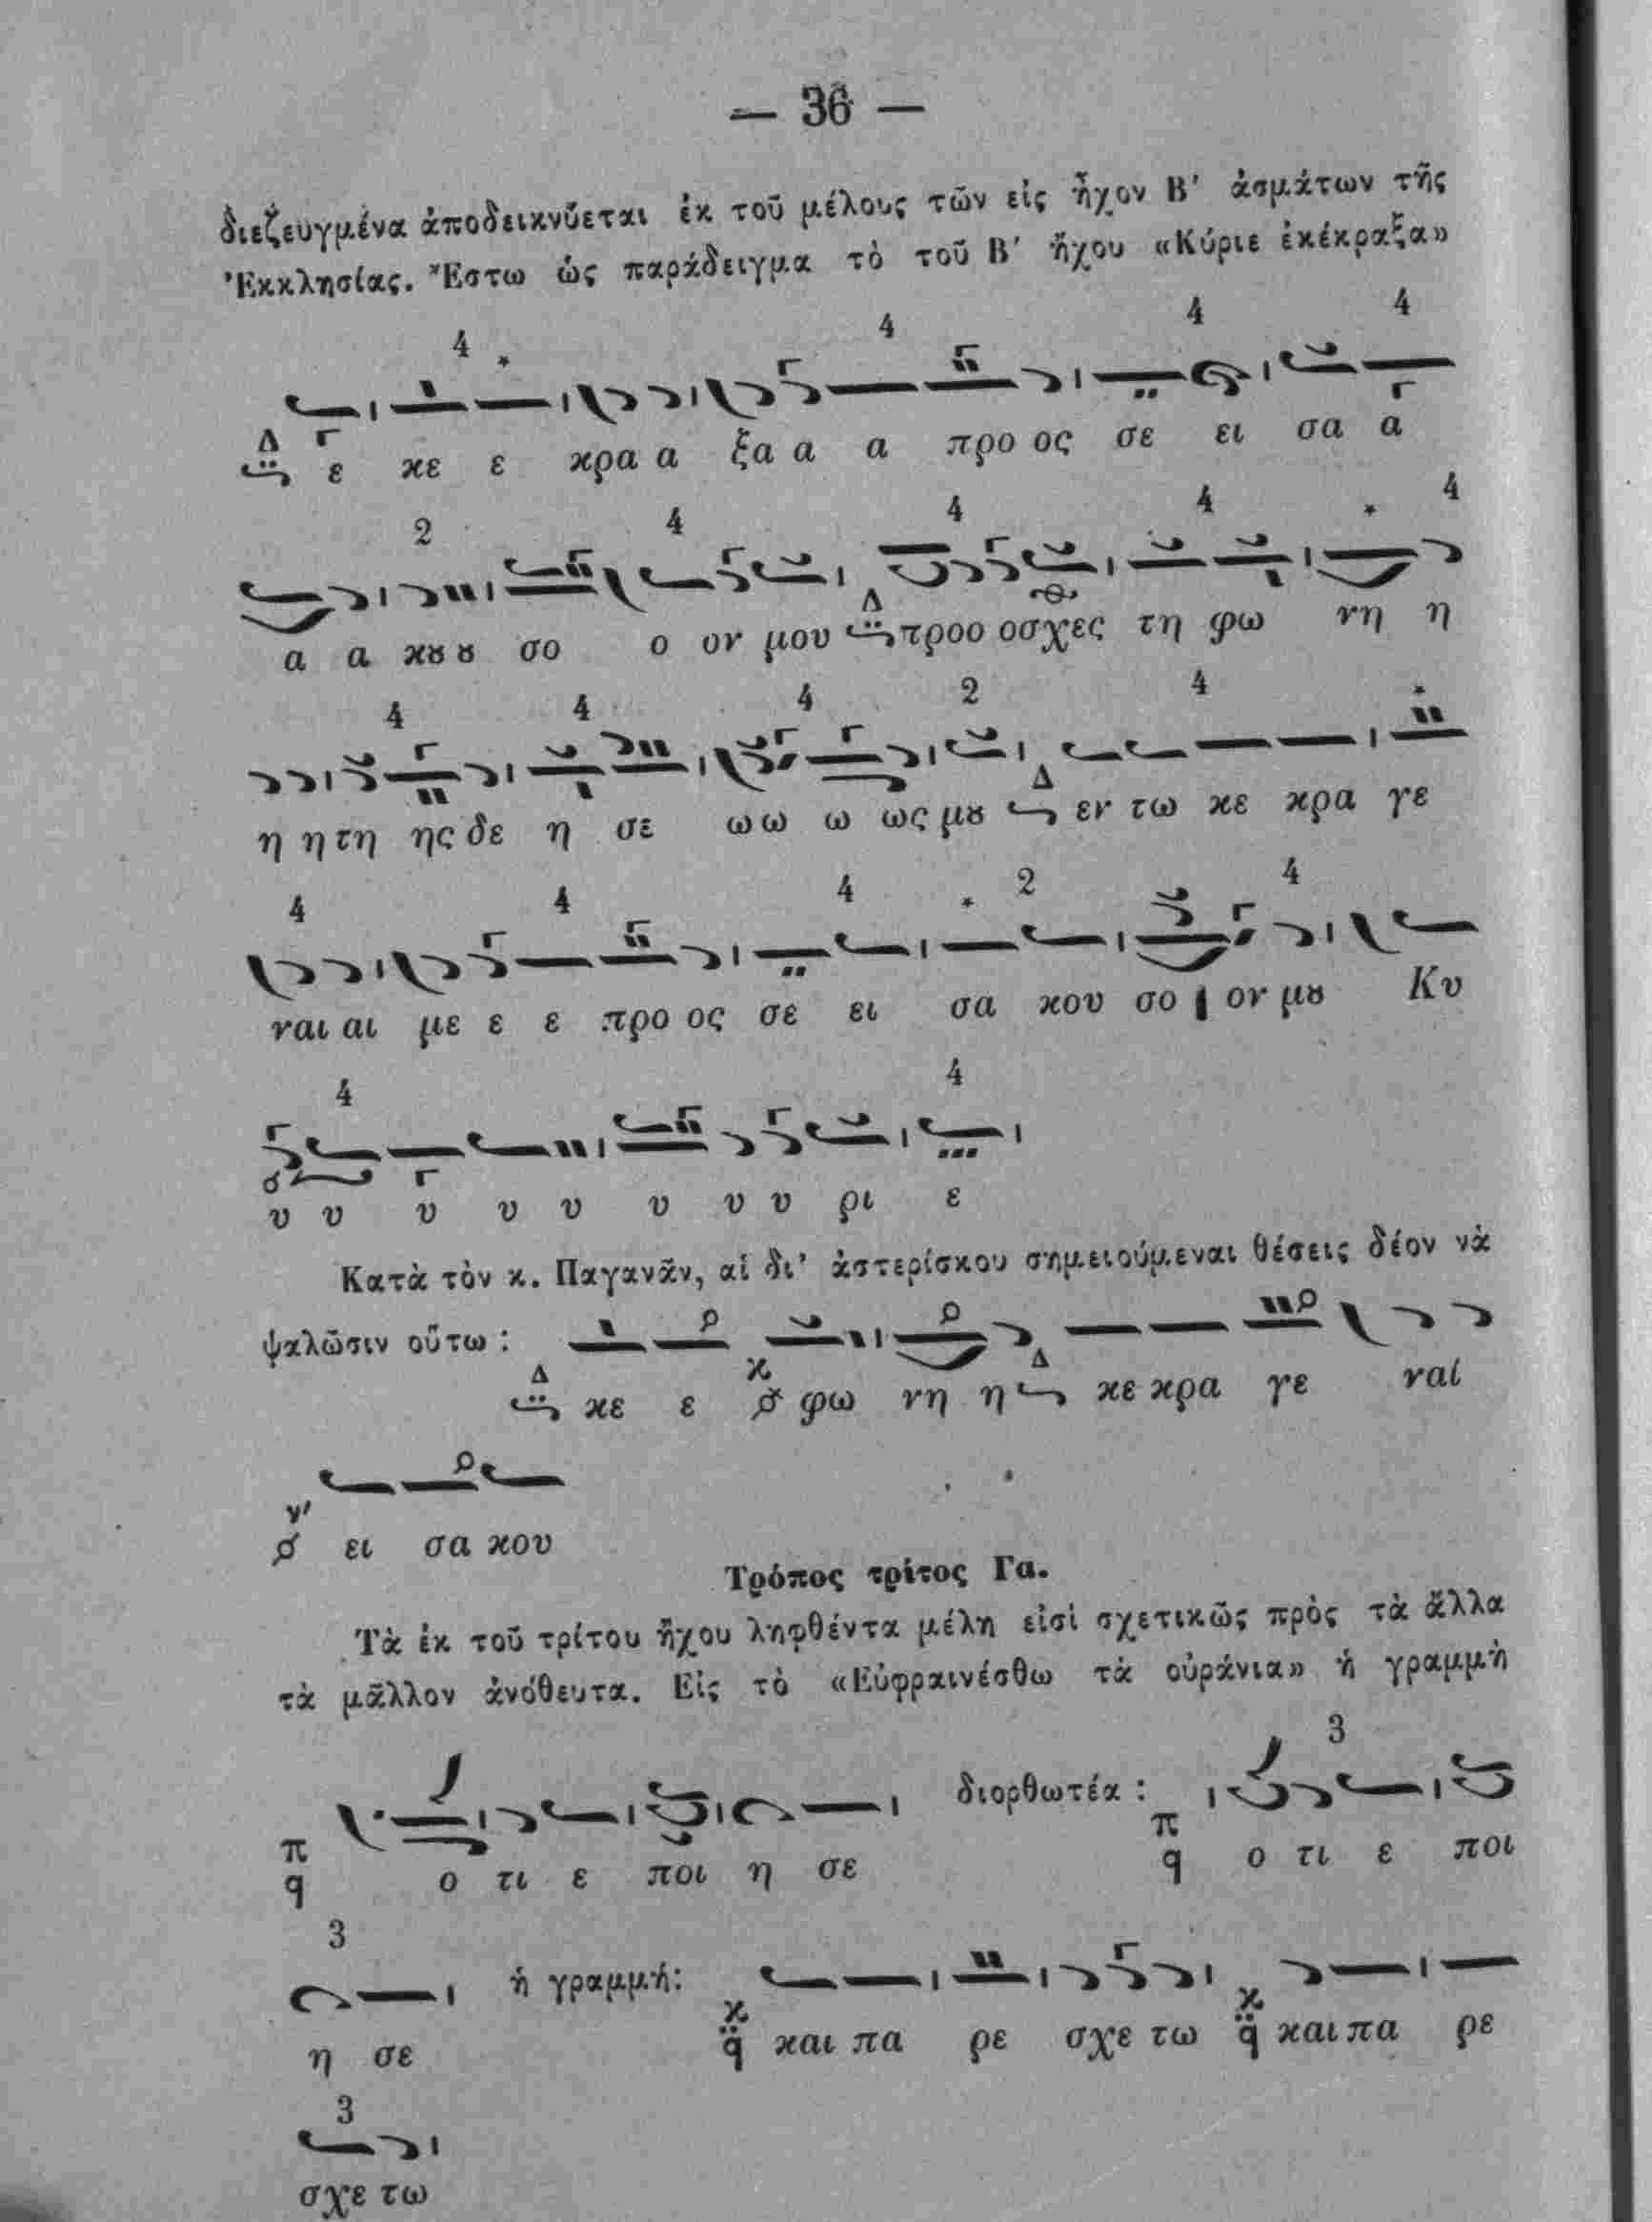 — 36 —
διεζευγμένα ἀποδεικνύεται ἐκ τοῦ μέλους τῶν εἰς ἦχον Β′ ἀσμάτων τῆς
Ἐκκλησίας. Ἔστω ὡς παράδειγμα τὸ τοῦ Β′ ἤχου «Κύριε ἐκέκραξα»
4 * 4 4 4
Δ ε κε ε κρα α ξα α α προ ος σε ει σα α
2 4 4 4 * 4
α α κȣ ȣ σο ο ον μου Δ προο οσχες τη φω νη η
4 4 4 2 4 *
η η τη ης δε η σε ω ω ω ως μȣ Δ εν τω κε κρα γε
4 4 4 * 2 4
ναι αι με ε ε προ ος σε ει σα κου σο ον μȣ Κυ
4 4
υ υ υ υ υ υ υ υ ρι ε
Κατὰ τὸν κ. Παγανᾶν, αἱ δι’ ἀστερίσκου σημειούμεναι θέσεις δέον νὰ
ψαλῶσιν οὕτω :
Δ κε ε κ φω νη η Δ κε κρα γε ναί
ν′ ει σα κου
Τρόπος τρίτος Γα.
Τὰ ἐκ τοῦ τρίτου ἤχου ληφθέντα μέλη εἰσὶ σχετικῶς πρὸς τὰ ἄλλα
τὰ μᾶλλον ἀνόθευτα. Εἰς τὸ «Εὐφραινέσθω τὰ οὐράνια» ἡ γραμμὴ
διορθωτέα : 3
π q ο τι ε ποι η σε π q ο τι ε ποι
3 ἡ γραμμή:
η σε κ q και πα ρε σχε τω κ q και πα ρε
3
σχε τω